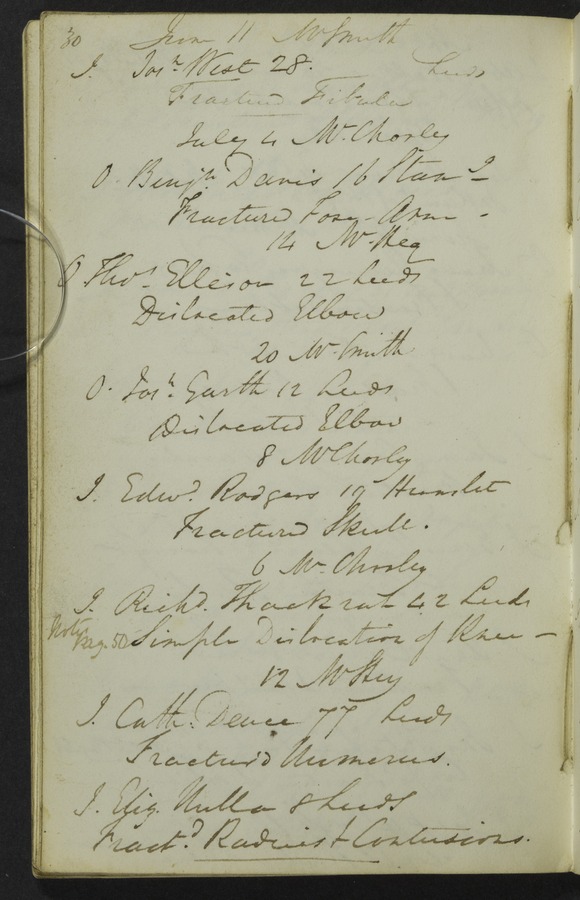 30 June 11 Mr Smith
I. Josh. West 28. Leeds
Fractured Fibula
July 4 Mr. Chorley
O. Benjn. Davis 16
Fractured Fore-Arm -
14 Mr. Hey
O Thos. Ellison 22 Leeds
Dislocated Elbow
20 Mr Smith
O. Josh. Garth 12 Leeds
Dislocated Elbow
8 Mr Chorley
I. Edwd. Rodgers 19 Hunslet
Fractured Skull.
6 Mr Chorley
I. Richd. Thackrah 42 Leeds
Note Pag. 50 Simple Dislocation of Knee -
12 Mr Hey
I. Cath. 77 Leeds
Fractur'd Humerus.
I. Eliz. 8 Leeds
Fractd. Radius & Contusions.